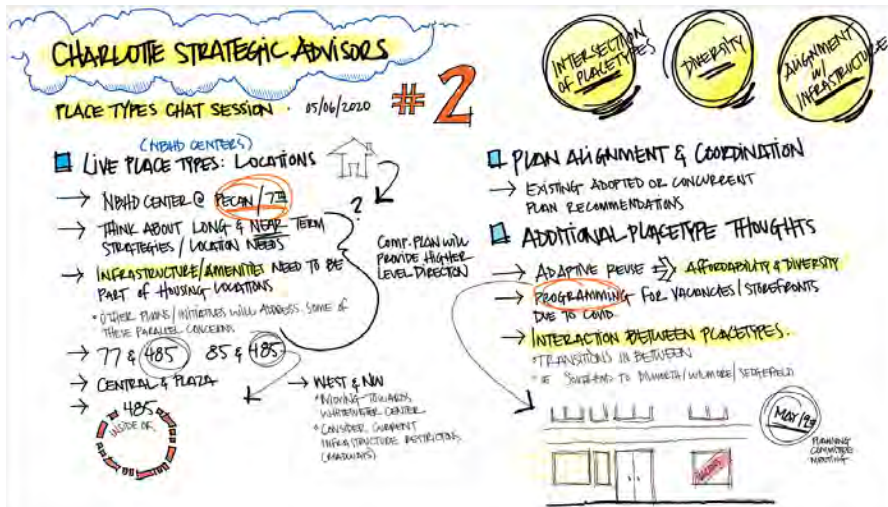 CHARLOTTE STRATEGIC ADVISORS
PLACE TYPES CHAT SESSION · 05/06/2020 #2
INTERSECTION
OF PLACETYPES
DIVERSITY
ALIGNMENT
W/
INFRASTRUCTURE
(NBHD CENTERS)
LIVE PLACE TYPES: LOCATIONS
→ NBHD CENTER @ PECAN/7TH
→ THINK ABOUT LONG & NEAR TERM
STRATEGIES/LOCATION NEEDS
→ INFRASTRUCTURE/AMENITIES NEED TO BE
PART OF HOUSING LOCATIONS
* OTHER PLANS/INITIATIVES WILL ADDRESS SOME OF
THESE PARALLEL CONCERNS
→ 77 & 485 85 & 485
→ CENTRAL & PLAZA
→ 485
INSIDE OF
?
COMP. PLAN WILL
PROVIDE HIGHER
LEVEL DIRECTION
→ WEST & NW
* MOVING TOWARDS
WHITEWATER CENTER
* CONSIDER CURRENT
INFRASTRUCTURE RESTRICTIONS
(ROADWAYS)
PLAN ALIGNMENT & COORDINATION
→ EXISTING ADOPTED OR CONCURRENT
PLAN RECOMMENDATIONS
ADDITIONAL PLACETYPE THOUGHTS
→ ADAPTIVE REUSE ⇒ AFFORDABILITY & DIVERSITY
→ PROGRAMMING FOR VACANCIES/STOREFRONTS
DUE TO COVID.
→ INTERACTION BETWEEN PLACETYPES.
* TRANSITIONS IN BETWEEN
SOUTHEND TO DILWORTH/WILMORE/SEDGEFIELD
MAY/19TH
PLANNING
COMMITTEE
MEETING